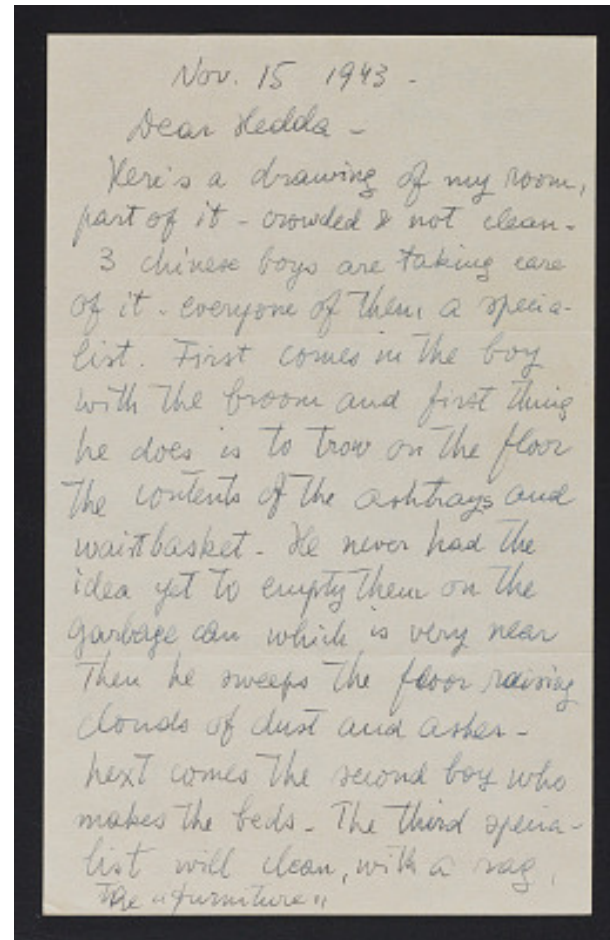 Nov. 15 1943 -
Dear Hedda -
Here's a drawing of my room,
part of it - crowded & not clean -
3 chinese boys are taking care
of it - everyone of them a specia-
list. First comes in the boy
with the broom and first thing
he does is to trow on the floor
the contents of the ashtrays and
waistbasket - He never had the
idea yet to empty them on the
garbage can which is very near
Then he sweeps the floor raising
clouds of dust and ashes -
next comes the second boy who
makes the beds - The third specia-
list will clean, with a rag,
the "furniture"